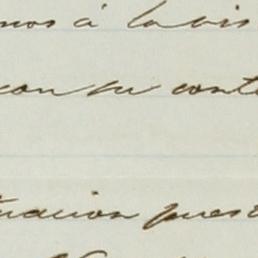 mos á la vis
con su conte
tuacion pues